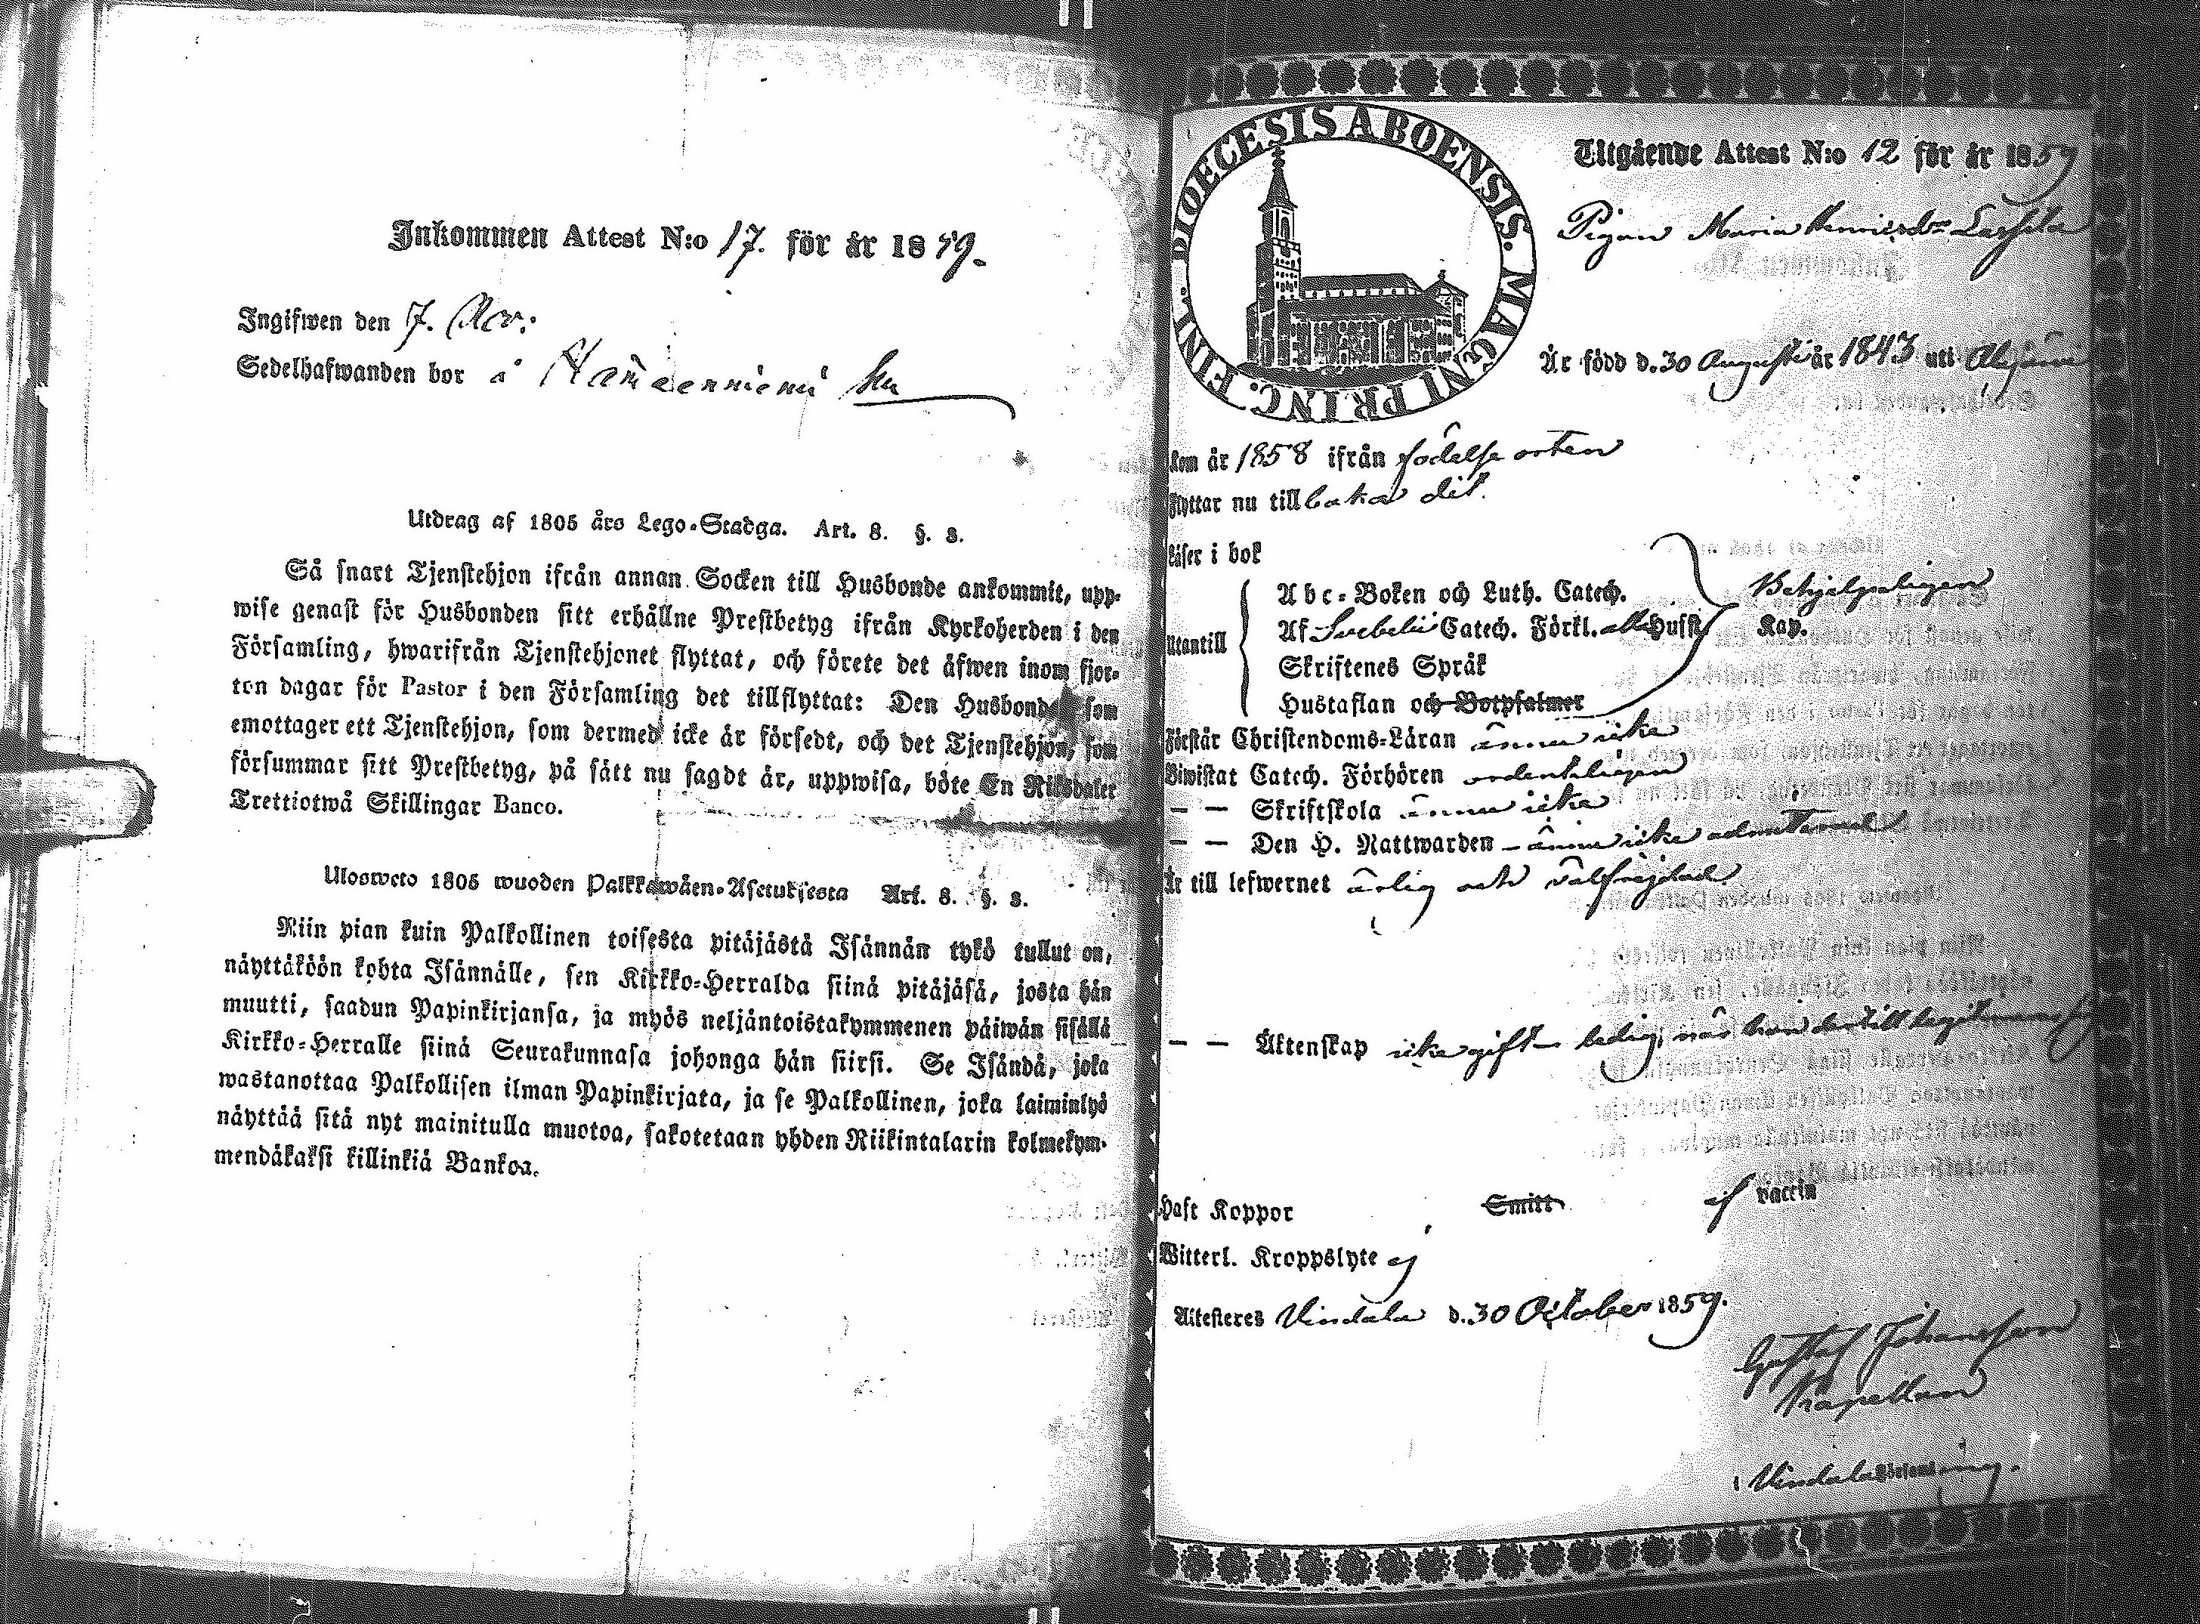 Inkommen Attest N:o 17. för år 1859.
Ingifwen den 7. Nov:
Sedelhafwanden bor å
Utdrag af 1805 års Lego-Stadga. Art. 8. §. 3.
Så snart Tjenstehjon ifrån annan Socken till Husbonde ankommit, upp-
wise genast för Husbonden sitt erhållne Prestbetyg ifrån Kyrkoherden i den
Församling, hwarifrån Tjenstehjonet flyttat, och förete det äfwen inom fjor-
ton dagar för Pastor i den Församling det tillflyttat: Den Husbonde som
emottager ett Tjenstehjon, som dermed icke är försedt, och det Tjenstehjon, som
försummar sitt Prestbetyg, på sätt nu sagdt är, uppwisa, böte En Riksdaler
Trettiotwå Skillingar Banco.
Ulosweto 1805 wuoden Palkkawäen-Asetuksesta Art. 8. §. 3.
Niin pian kuin Palkollinen toisesta pitäjästä Isännän tykö tullut on,
näyttäköön kohta Isännälle, sen Kirkko-Herralda siinä pitäjäsä, josta hän
muutti, saadun Papinkirjansa, ja myös neljäntoistakymmenen päiwän sisällä
Kirkko-Herralle siinä Seurakunnasa johonga hän siirsi. Se Isändä, joka
wastanottaa Palkollisen ilman Papinkirjata, ja se Palkollinen, joka laiminlyö
näyttää sitä nyt mainitulla muotoa, sakotetaan yhden Riikintalarin kolmekym-
mendäkaksi killinkiä Bankoa.
DIOECESIS ABOENSIS. MAGNI PRINC. FINL.
Utgående Attest N:o 12 för år 1859
Pigan Maria Henricsdr Lassila
Är född d. 30 Augusti år 1843 uti
Kom år 1858 ifrån födelse orten
Flyttar nu till baka dit.
Läser i bok
Abc-Boken och Luth. Catech.
Utantill
Af Svebelii Catech. Förkl. alla Hufst. Kap.
Behjelpeligen
Skriftenes Språk
Hustaflan och Botpsalmer
Förstår Christendoms-Läran ännu icke
Biwistat Catech. Förhören ordentligen
— — Skriftskola ännu icke
— — Den H. Nattwarden – ännu icke admitterad
Är till lefwernet ärlig och välfrejdad.
— — Äktenskap icke gift – ledig, när hon dertill
Haft Koppor Smitt ej vaccin
Witterl. Kroppslyte ej
Attesteres Vindala d. 30 October 1859.
Gustaf Johansson
Kapellan
i Vindala Församling.